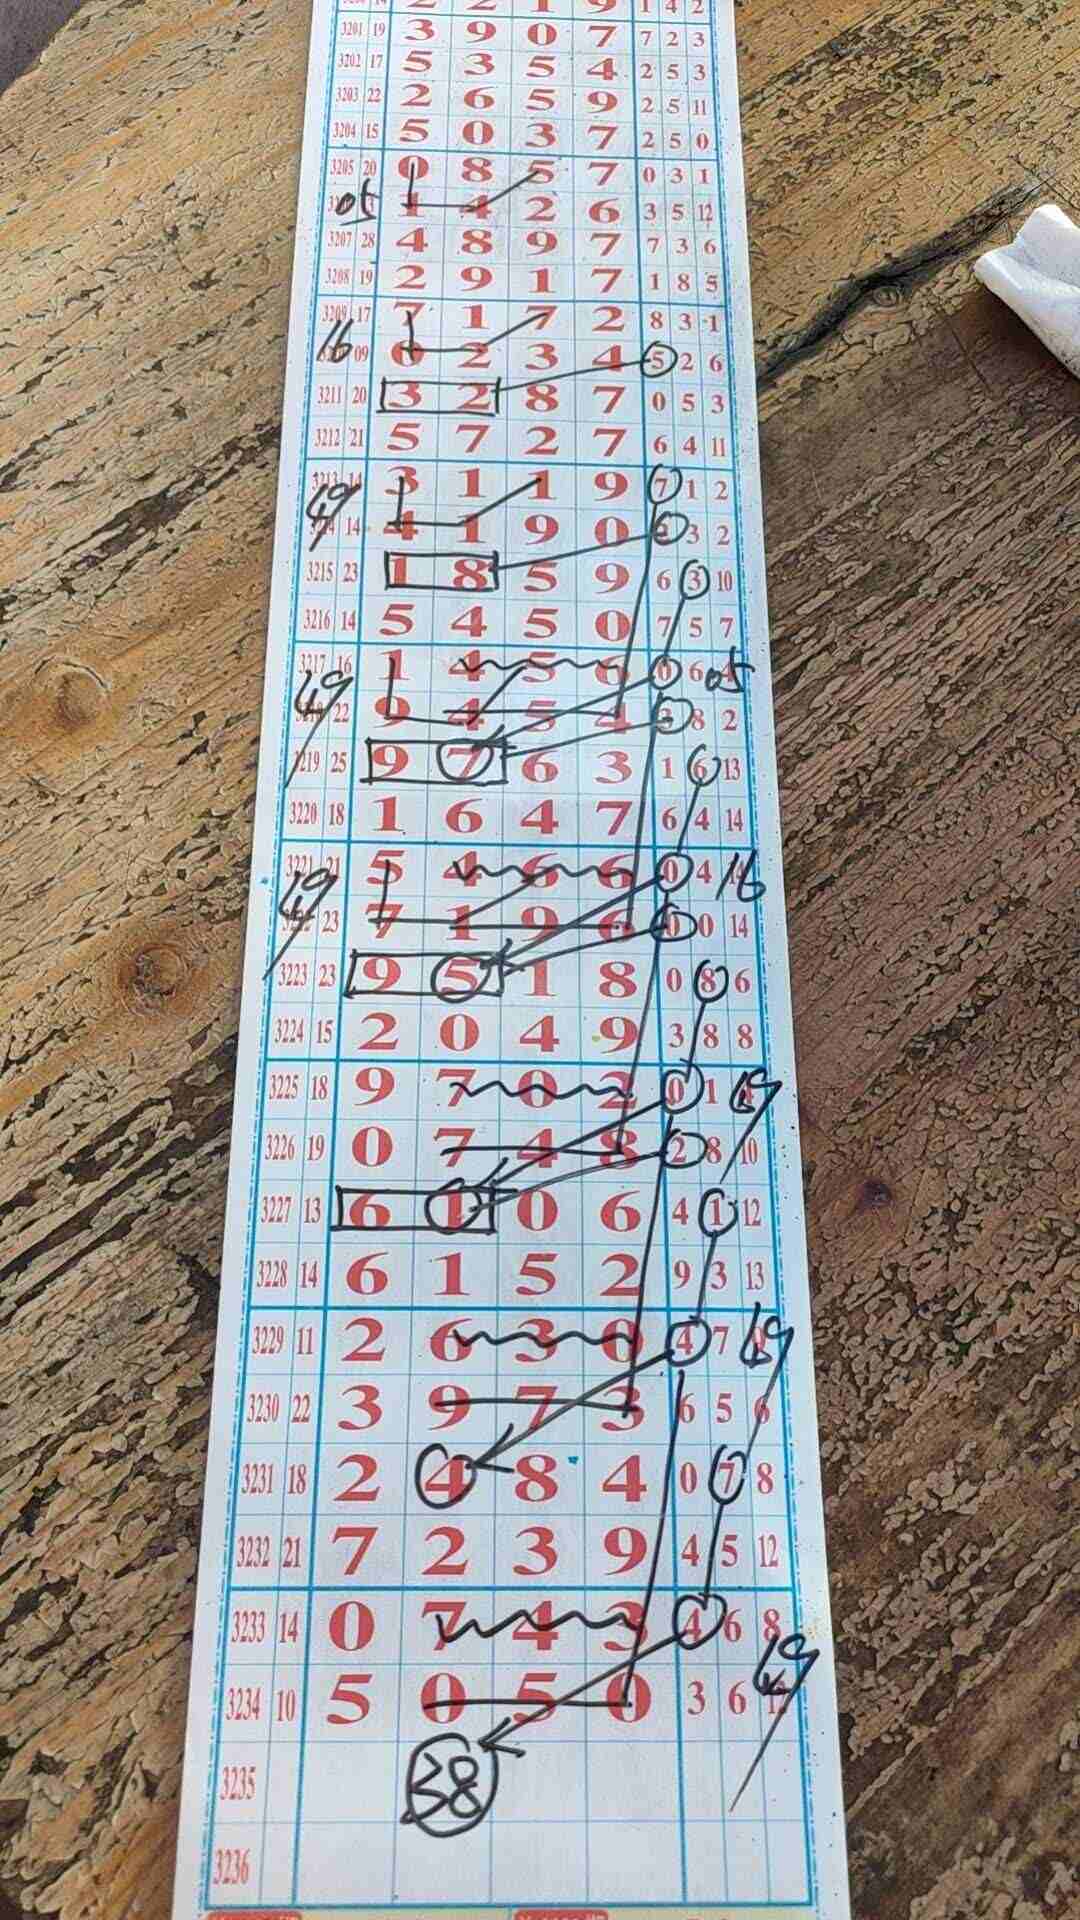 2 2 1 9 1 4 2
3201 19 3 9 0 7 7 2 3
3202 17 5 3 5 4 2 5 3
3203 22 2 6 5 9 2 5 11
3204 15 5 0 3 7 2 5 0
3205 20 0 8 5 7 0 3 1
05 1 4 2 6 3 5 12
3207 28 4 8 9 7 7 3 6
3208 19 2 9 1 7 1 8 5
3209 17 7 1 7 2 8 3 1
16 09 0 2 3 4 5 2 6
3211 20 3 2 8 7 0 5 3
3212 21 5 7 2 7 6 4 11
3213 14 3 1 1 9 7 1 2
49 14 4 1 9 0 3 2
3215 23 1 8 5 9 6 3 10
3216 14 5 4 5 0 7 5 7
3217 16 1 4 5 6 0 6 4 05
49 22 9 4 5 4 8 2
3219 25 9 7 6 3 1 6 13
3220 18 1 6 4 7 6 4 14
3221 21 5 4 6 6 0 4 16
49 23 7 1 9 6 0 14
3223 23 9 5 1 8 0 8 6
3224 15 2 0 4 9 3 8 8
3225 18 9 7 0 2 0 1 49
3226 19 0 7 4 8 2 8 10
3227 13 6 1 0 6 4 1 12
3228 14 6 1 5 2 9 3 13
3229 11 2 6 3 0 4 7 49
3230 22 3 9 7 3 6 5 6
3231 18 2 4 8 4 0 7 8
3232 21 7 2 3 9 4 5 12
3233 14 0 7 4 3 4 6 8
3234 10 5 0 5 0 3 6 49
3235 38
3236